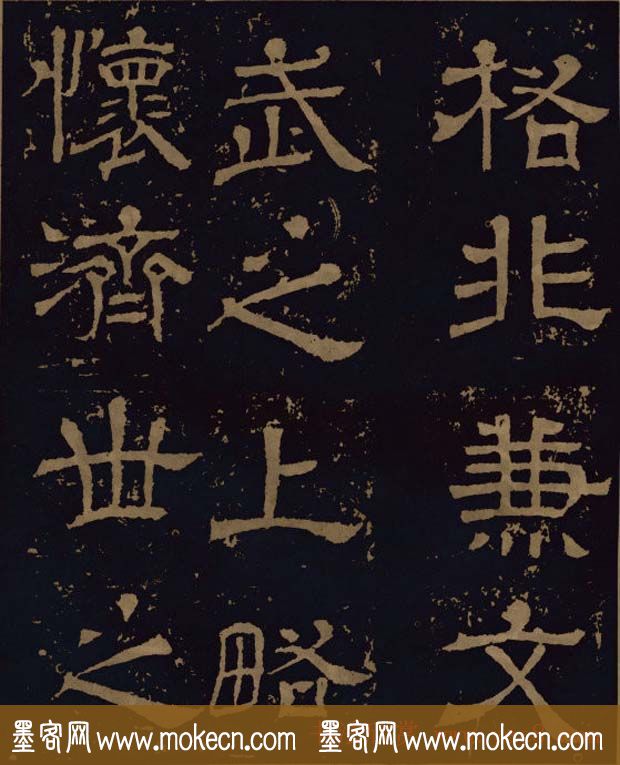 格非兼文
武之上略
懷濟世之
墨客网 www.mokecn.com 墨客网 www.mokecn.com